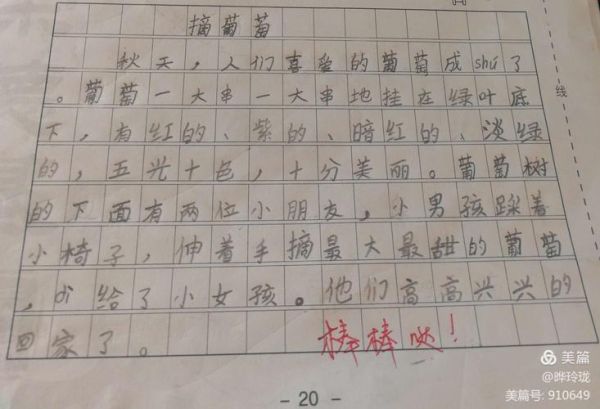 摘葡萄
秋天，人们喜爱的葡萄成shú了
。葡萄一大串一大串地挂在绿叶底
下，有红的、紫的、暗红的、淡绿
的，五光十色，十分美丽。葡萄树
的下面有两位小朋友，小男孩踩着
小椅子，伸着手摘最大最甜的葡萄
，dì给了小女孩。他们高高兴兴的
回家了。
棒棒哒！
线
- 20 -
美篇
@晔玲珑
美篇号: 910649